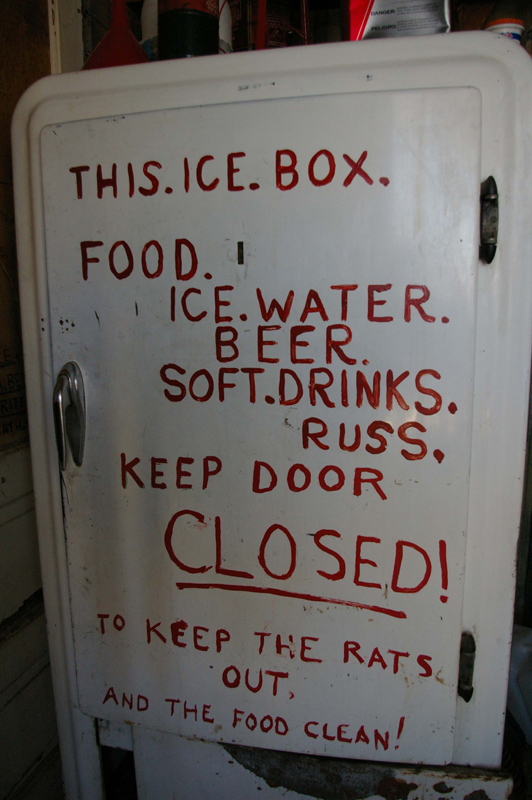 DANGER:
PELIGRO:
THIS.ICE.BOX.
FOOD.
ICE.WATER.
BEER.
SOFT.DRINKS.
RUSS.
KEEP DOOR
CLOSED!
TO KEEP THE RATS
OUT,
AND THE FOOD CLEAN!